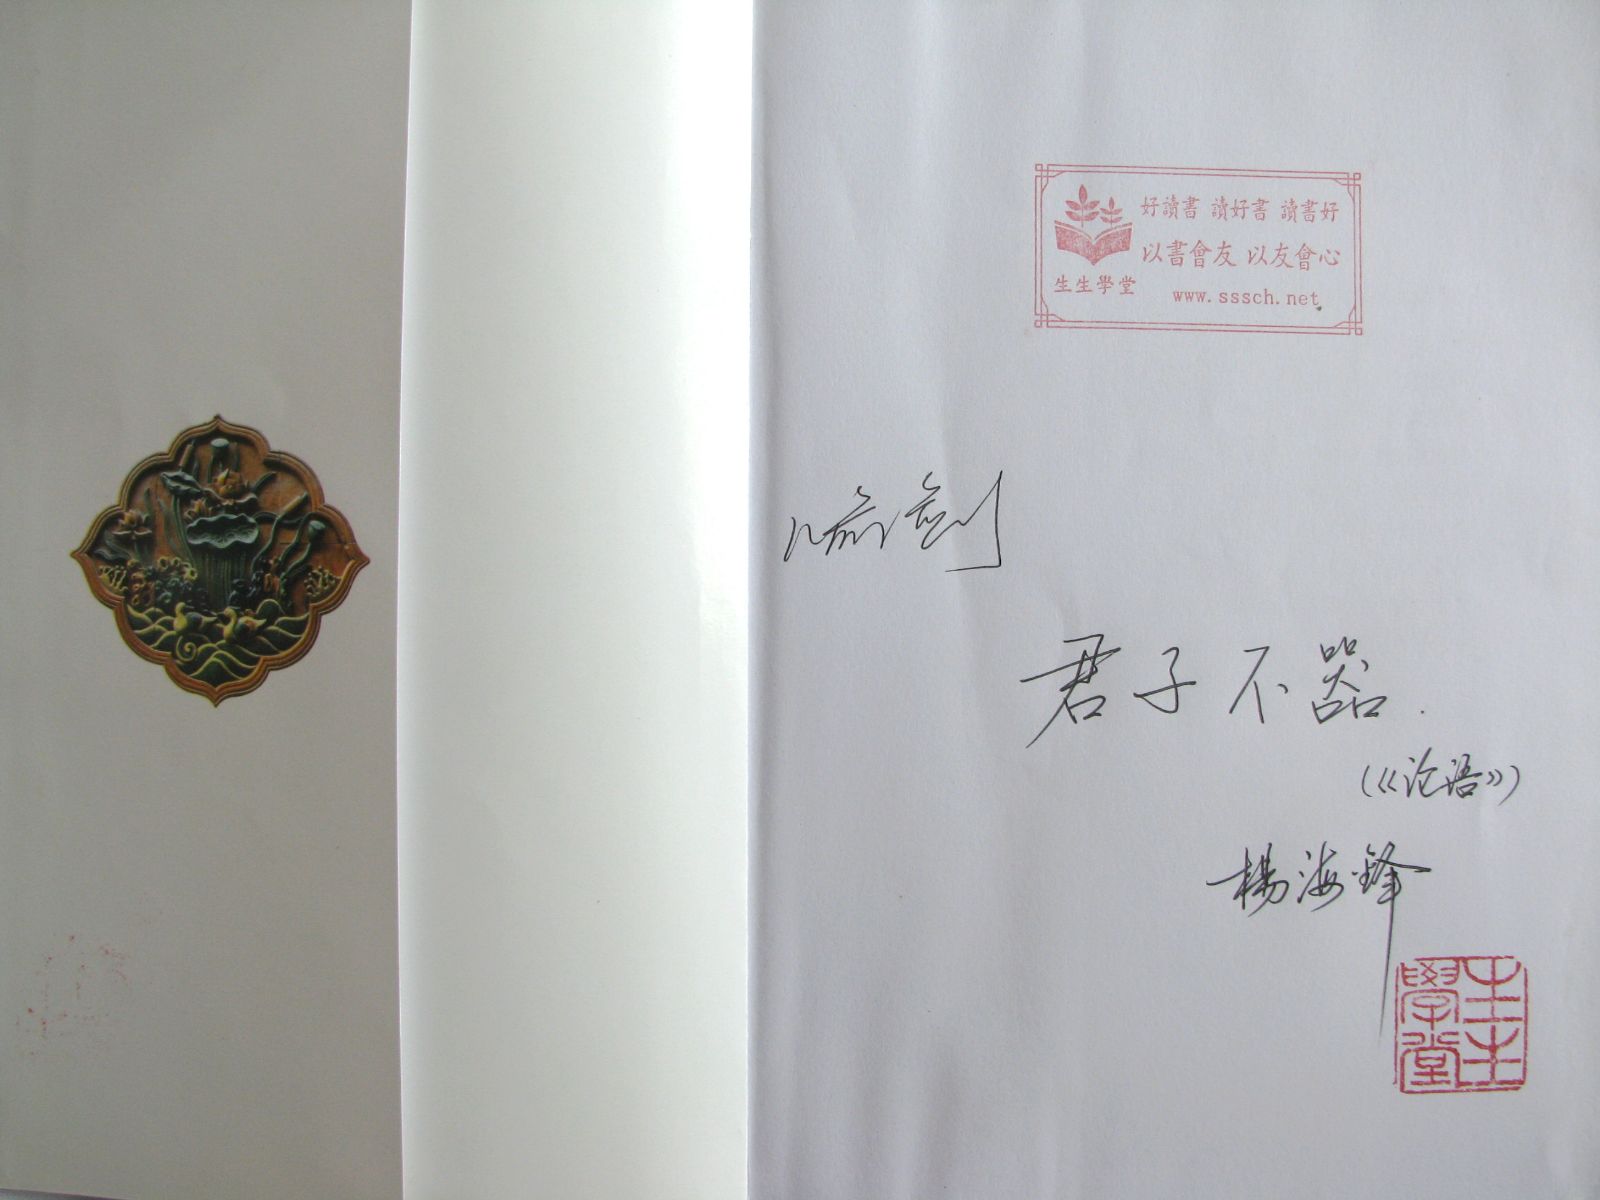 好讀書 讀好書 讀書好
以書會友 以友會心
生生學堂
www.sssch.net
君子不器.
(《论语》)
楊海鋒
生生
學堂